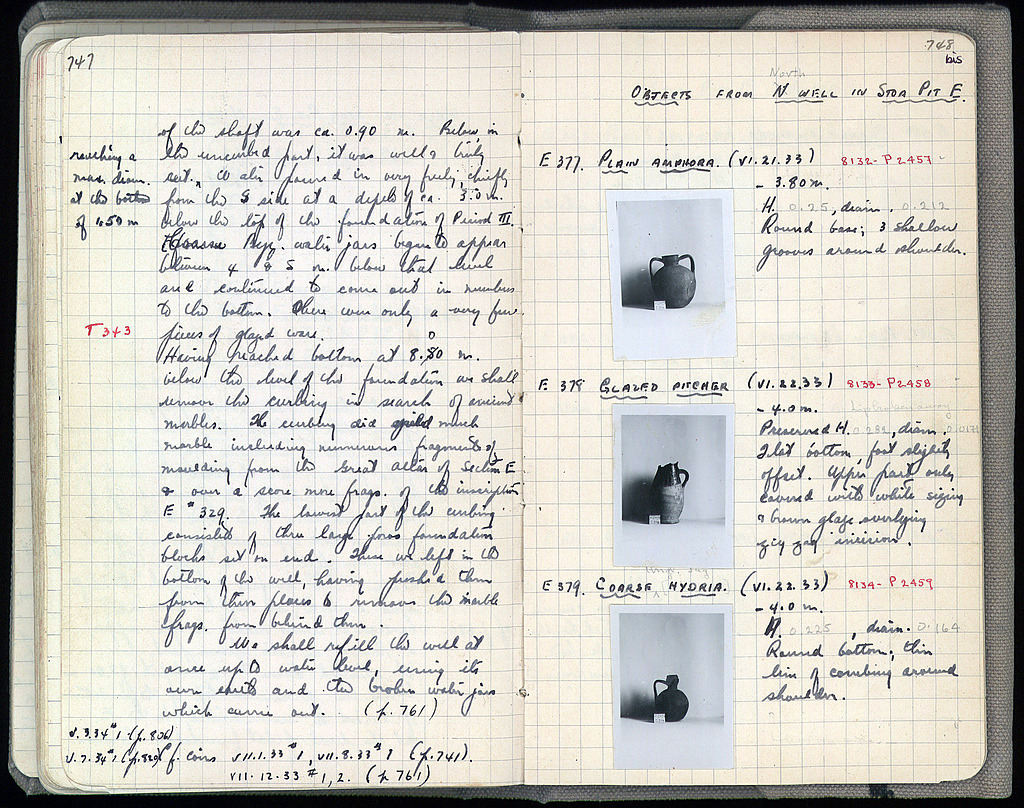 747
of the shaft was ca. 0.90 m. Below, in
the uncurbed part, it was well & truly
reaching a
max. diam.
at the bottom
of 1.50 m
set. Water poured in very freely, chiefly
from the S side at a depth of ca. 3.0 m.
below the top of the foundation of Period III.
Coarse Byz. water jars began to appear
between 4 & 5 m. below that level
and continued to come out in numbers
to the bottom. There were only a very few
T 343
pieces of glazed ware.
Having reached bottom at 8.80 m.
below the level of the foundation we shall
remove the curbing in search of ancient
marbles. The curbing did yield much
marble including numerous fragments of
moulding from the Great Altar of Section E
& over a score more frags. of the inscription
E # 329. The lowest part of the curbing
consisted of three large poros foundation
blocks set on end. These we left in the
bottom of the well, having pushed them
from their places to remove the marble
frags. from behind them.
We shall refill the well at
once up to water level, using its
own earth and the broken water jars
which came out. (p. 761)
V.3.34 #1 (p. 806)
V.7.34 #1 (p. 820) Cf. coins VII.1.33 #1, VII.8.33 #1 (p.741).
VII.12.33 #1, 2. (p 761)
748
bis
North
OBJECTS FROM N WELL IN STOA PIT E.
E 377. PLAIN AMPHORA. (VI.21.33) 8132- P 2457
- 3.80 m.
H. 0.25, diam. 0.212
Round base; 3 shallow
grooves around shoulder.
E 378 GLAZED PITCHER (VI.22.33) 8133- P 2458
- 4.0 m.
Preserved H. , diam.
Flat bottom, foot slightly
offset. Upper part only
covered with white sizing
& brown glaze overlying
zig zag incision.
E 379. COARSE HYDRIA. (VI.22.33) 8134- P 2459
- 4.0 m.
H. 0.225, diam. 0.164
Round bottom; thin
line of combing around
shoulder.